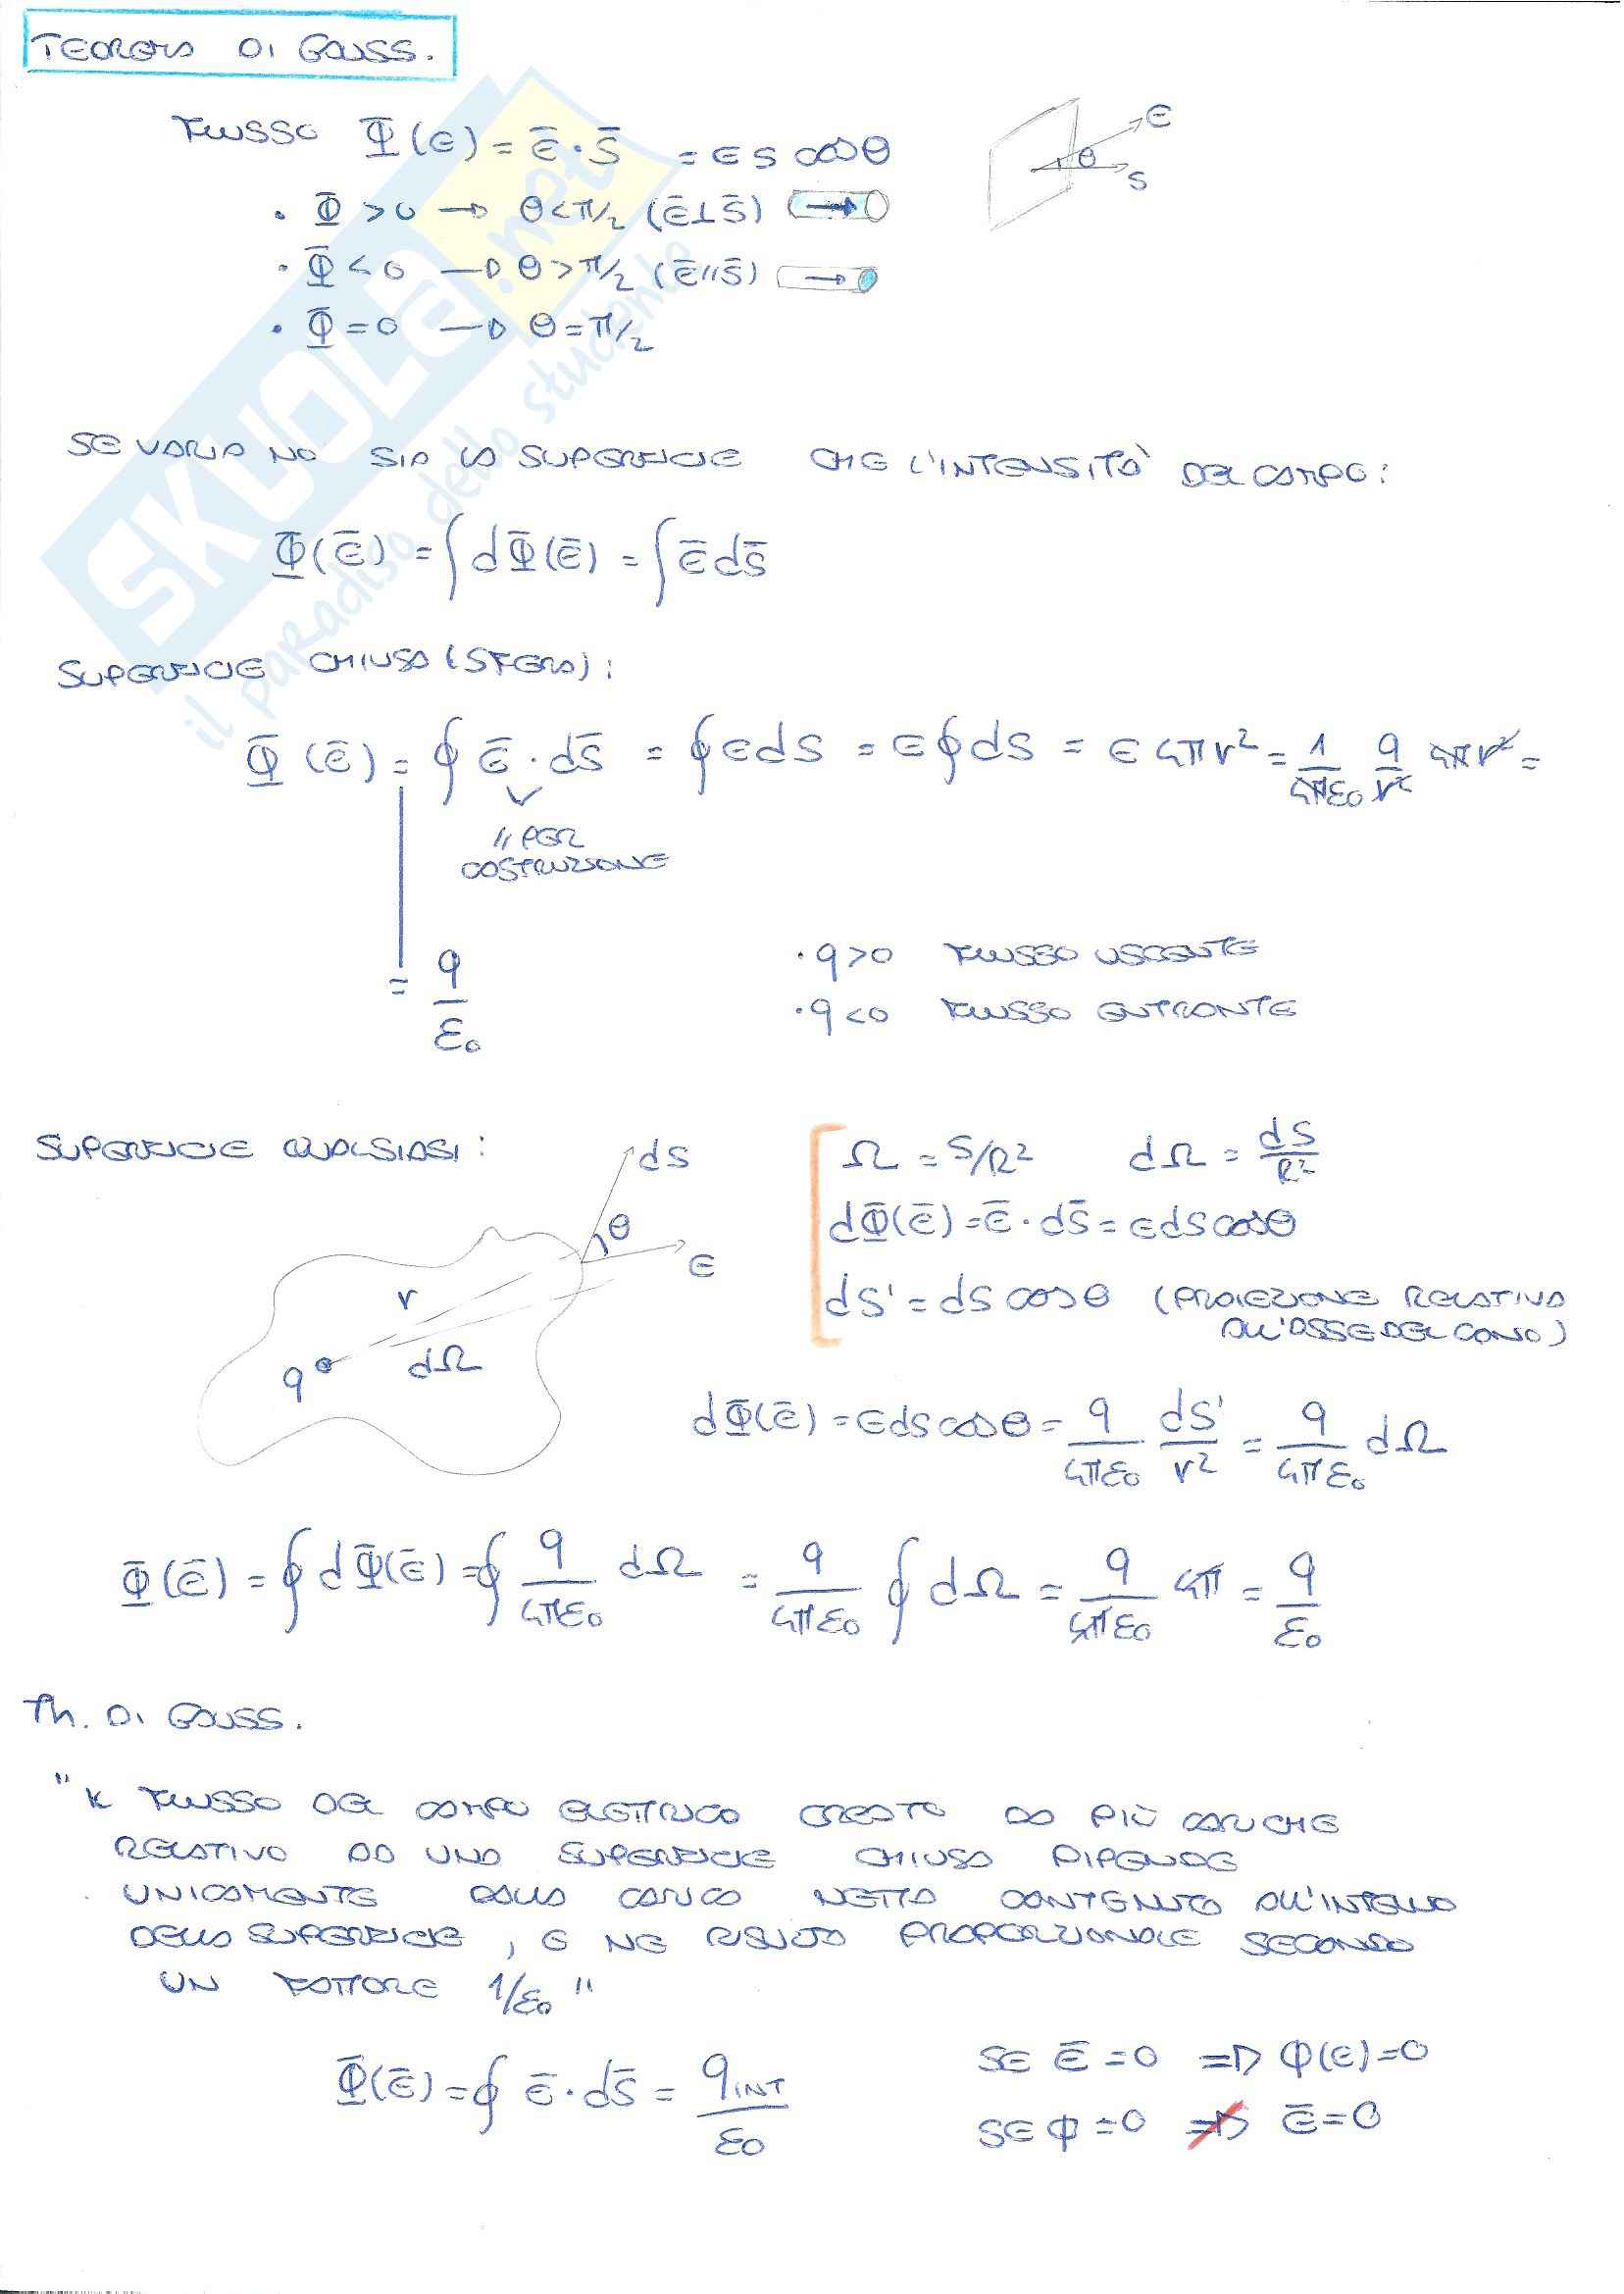 TEOREMA DI GAUSS.
FLUSSO Φ(E) = Ē · S̄ = E S cosθ
E
θ
S
• Φ > 0 → θ < π/2 (Ē ⊥ S̄)
• Φ < 0 → θ > π/2 (Ē // S̄)
• Φ = 0 → θ = π/2
SE VARIANO SIA LA SUPERFICIE CHE L'INTENSITÀ DEL CAMPO:
Φ(Ē) = ∫ dΦ(Ē) = ∫ Ē dS̄
SUPERFICIE CHIUSA (SFERA):
Φ(Ē) = ∮ Ē · dS̄ = ∮ E dS = E ∮ dS = E 4πr² = 1/4πε₀ q/r² 4πr² =
// PER
COSTRUZIONE
= q/ε₀
• q > 0 FLUSSO USCENTE
• q < 0 FLUSSO ENTRANTE
SUPERFICIE QUALSIASI:
dS
θ
E
r
q
dΩ
Ω = S/R² dΩ = dS/R²
dΦ(Ē) = Ē · dS̄ = E dS cosθ
dS' = dS cosθ (PROIEZIONE RELATIVA
ALL'ASSE DEL CONO)
dΦ(Ē) = E dS cosθ = q/4πε₀ dS'/r² = q/4πε₀ dΩ
Φ(Ē) = ∮ dΦ(Ē) = ∮ q/4πε₀ dΩ = q/4πε₀ ∮ dΩ = q/4πε₀ 4π = q/ε₀
Th. DI GAUSS.
"IL FLUSSO DEL CAMPO ELETTRICO CREATO DA PIÙ CARICHE
RELATIVO AD UNA SUPERFICIE CHIUSA DIPENDE
UNICAMENTE DALLA CARICA NETTA CONTENUTA ALL'INTERNO
DELLA SUPERFICIE, E NE RISULTA PROPORZIONALE SECONDO
UN FATTORE 1/ε₀"
Φ(Ē) = ∮ Ē · dS̄ = qINT/ε₀
SE Ē = 0 ⇒ Φ(E) = 0
SE Φ = 0 ⇏ Ē = 0
SKUOLA.net
il paradiso dello studente